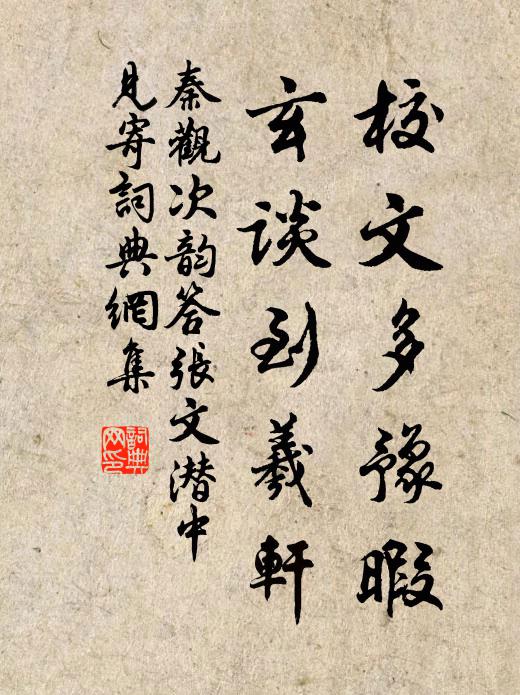 校文多豫暇
玄談到羲軒
秦觀次韵答張文潜中
見寄詞典網集
詞典
网印